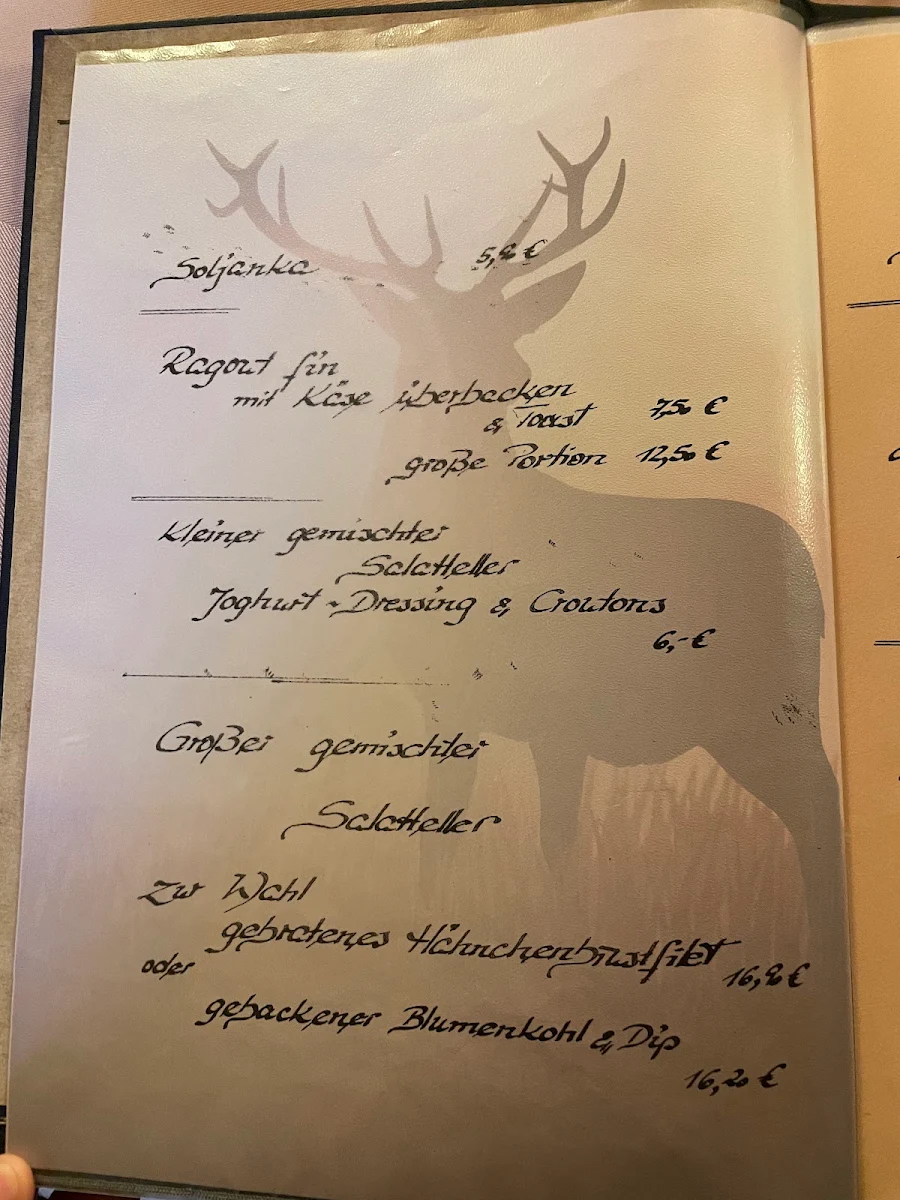 Soljanka 5,90 €
Ragout fin
mit Käse überbacken
& Toast 7,50 €
große Portion 12,50 €
Kleiner gemischter
Salatteller
Joghurt-Dressing & Croutons
6,- €
Großer gemischter
Salatteller
Zur Wahl
gebratenes Hähnchenbrustfilet
oder 16,90 €
gebackener Blumenkohl & Dip
16,20 €